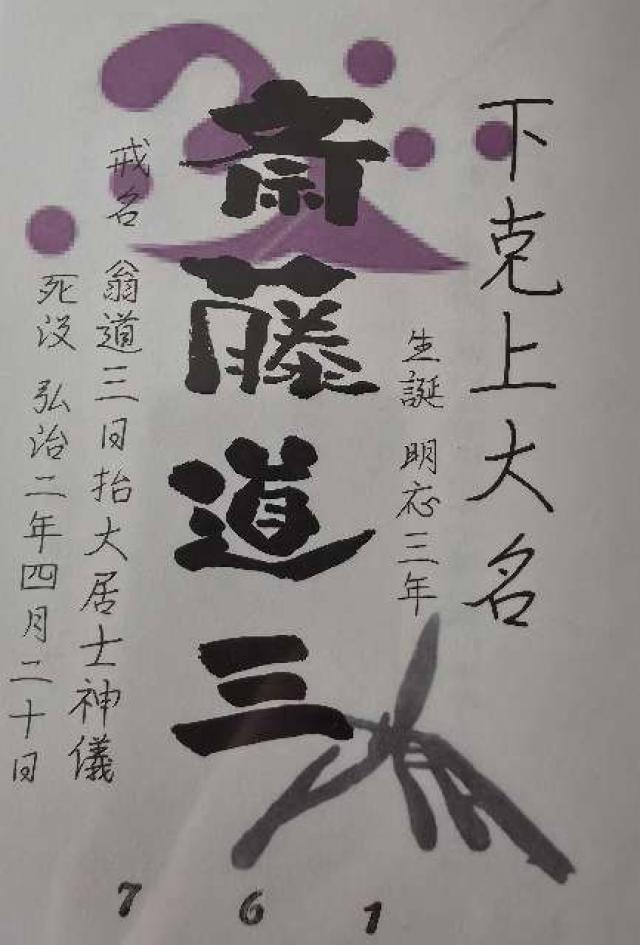 下克上大名
生誕 明応三年
斎藤道三
戒名 翁道三日抬大居士神儀
死没 弘治二年四月二十日
7 6 1